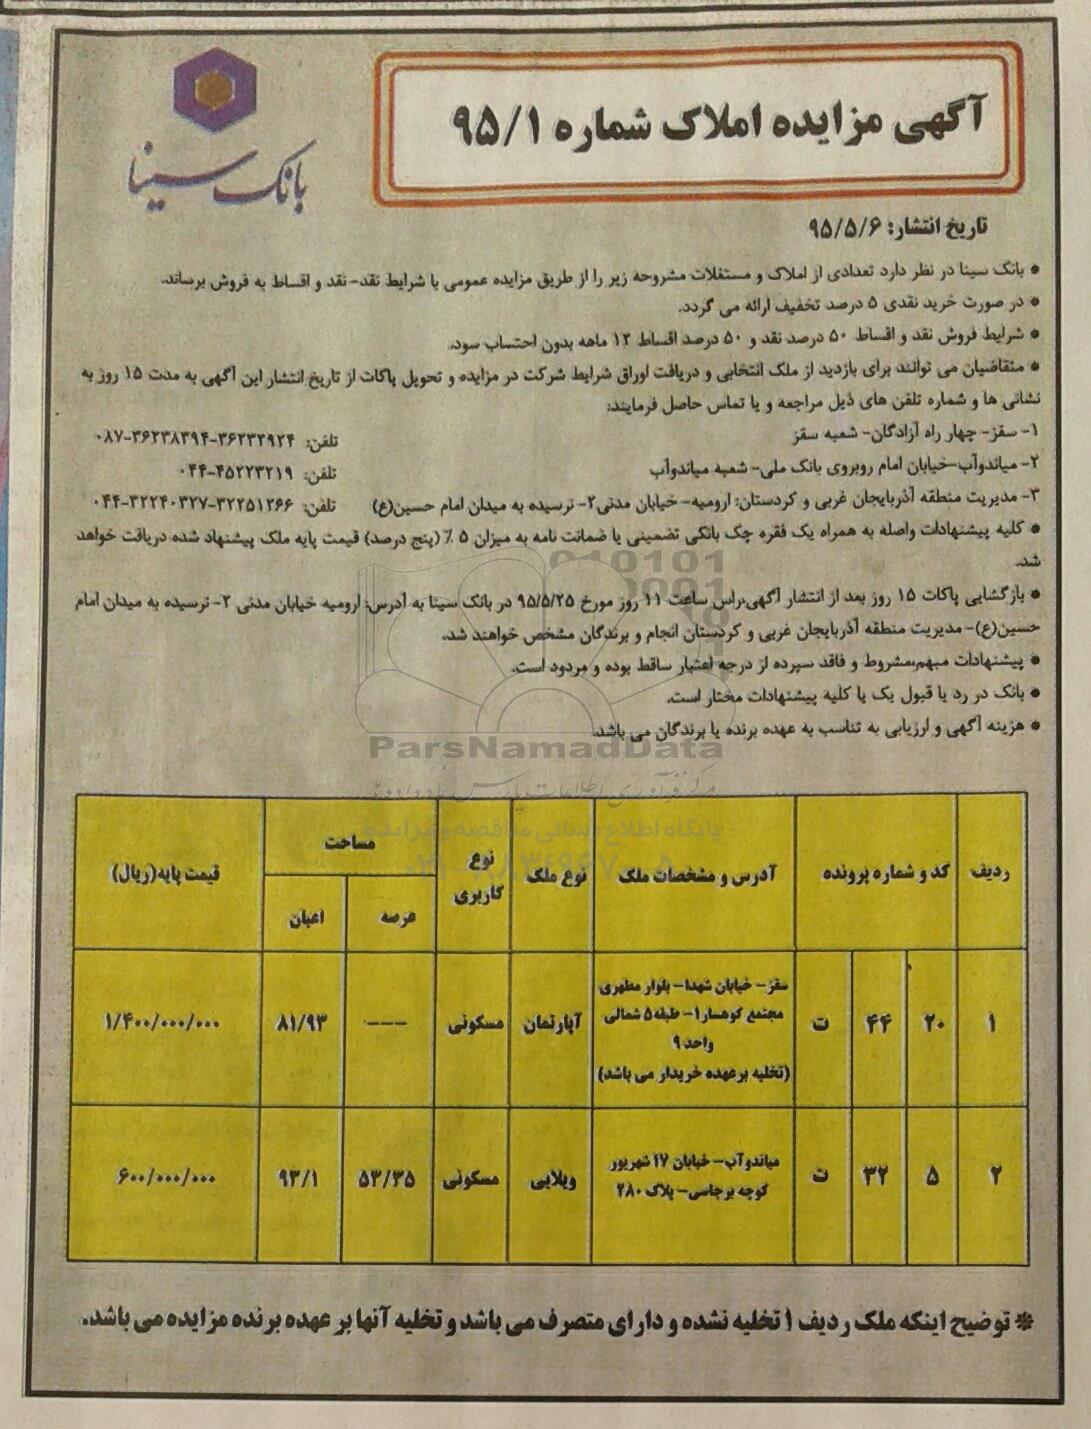 آگهی مزایده املاک شماره ۹۵/۱
بانک سینا
تاریخ انتشار: ۹۵/۵/۶
* بانک سینا در نظر دارد تعدادی از املاک و مستغلات مشروحه زیر را از طریق مزایده عمومی با شرایط نقد- نقد و اقساط به فروش برساند.
* در صورت خرید نقدی ۵ درصد تخفیف ارائه می گردد.
* شرایط فروش نقد و اقساط ۵۰ درصد نقد و ۵۰ درصد اقساط ۱۲ ماهه بدون احتساب سود.
* متقاضیان می توانند برای بازدید از ملک انتخابی و دریافت اوراق شرایط شرکت در مزایده و تحویل پاکات از تاریخ انتشار این آگهی به مدت ۱۵ روز به
نشانی ها و شماره تلفن های ذیل مراجعه و یا تماس حاصل فرمایند:
۱- سقز- چهار راه آزادگان- شعبه سقز تلفن: ۰۸۷-۳۶۲۳۸۳۹۴-۳۶۲۳۲۹۲۴
۲- میاندوآب-خیابان امام روبروی بانک ملی- شعبه میاندوآب تلفن: ۰۴۴-۴۵۲۲۳۲۱۹
۳- مدیریت منطقه آذربایجان غربی و کردستان: ارومیه- خیابان مدنی۲- نرسیده به میدان امام حسین(ع) تلفن: ۰۴۴-۳۲۲۴۰۳۲۷-۳۲۲۵۱۲۶۶
* کلیه پیشنهادات واصله به همراه یک فقره چک بانکی تضمینی یا ضمانت نامه به میزان ۵ ٪ (پنج درصد) قیمت پایه ملک پیشنهاد شده دریافت خواهد
شد.
* بازگشایی پاکات ۱۵ روز بعد از انتشار آگهی،راس ساعت ۱۱ روز مورخ ۹۵/۵/۲۵ در بانک سینا به آدرس: ارومیه خیابان مدنی ۲- نرسیده به میدان امام
حسین(ع)- مدیریت منطقه آذربایجان غربی و کردستان انجام و برندگان مشخص خواهند شد.
* پیشنهادات مبهم،مشروط و فاقد سپرده از درجه اعتبار ساقط بوده و مردود است.
* بانک در رد یا قبول یک یا کلیه پیشنهادات مختار است.
* هزینه آگهی و ارزیابی به تناسب به عهده برنده یا برندگان می باشد.
ParsNamadData
پایگاه اطلاع رسانی مناقصه و مزایده
ردیف کد و شماره پرونده آدرس و مشخصات ملک نوع ملک نوع کاربری مساحت قیمت پایه(ریال)
عرصه اعیان
۱ ۲۰ ۴۴ ت سقز- خیابان شهدا- بلوار مطهری
مجتمع کوهسار۱- طبقه۵ شمالی
واحد۹
(تخلیه برعهده خریدار می باشد) آپارتمان مسکونی --- ۸۱/۹۳ ۱/۴۰۰/۰۰۰/۰۰۰
۲ ۵ ۳۲ ت میاندوآب- خیابان ۱۷ شهریور
کوچه برجاسی- پلاک ۲۸۰ ویلایی مسکونی ۵۳/۳۵ ۹۳/۱ ۶۰۰/۰۰۰/۰۰۰
* توضیح اینکه ملک ردیف ۱ تخلیه نشده و دارای متصرف می باشد و تخلیه آنها بر عهده برنده مزایده می باشد.